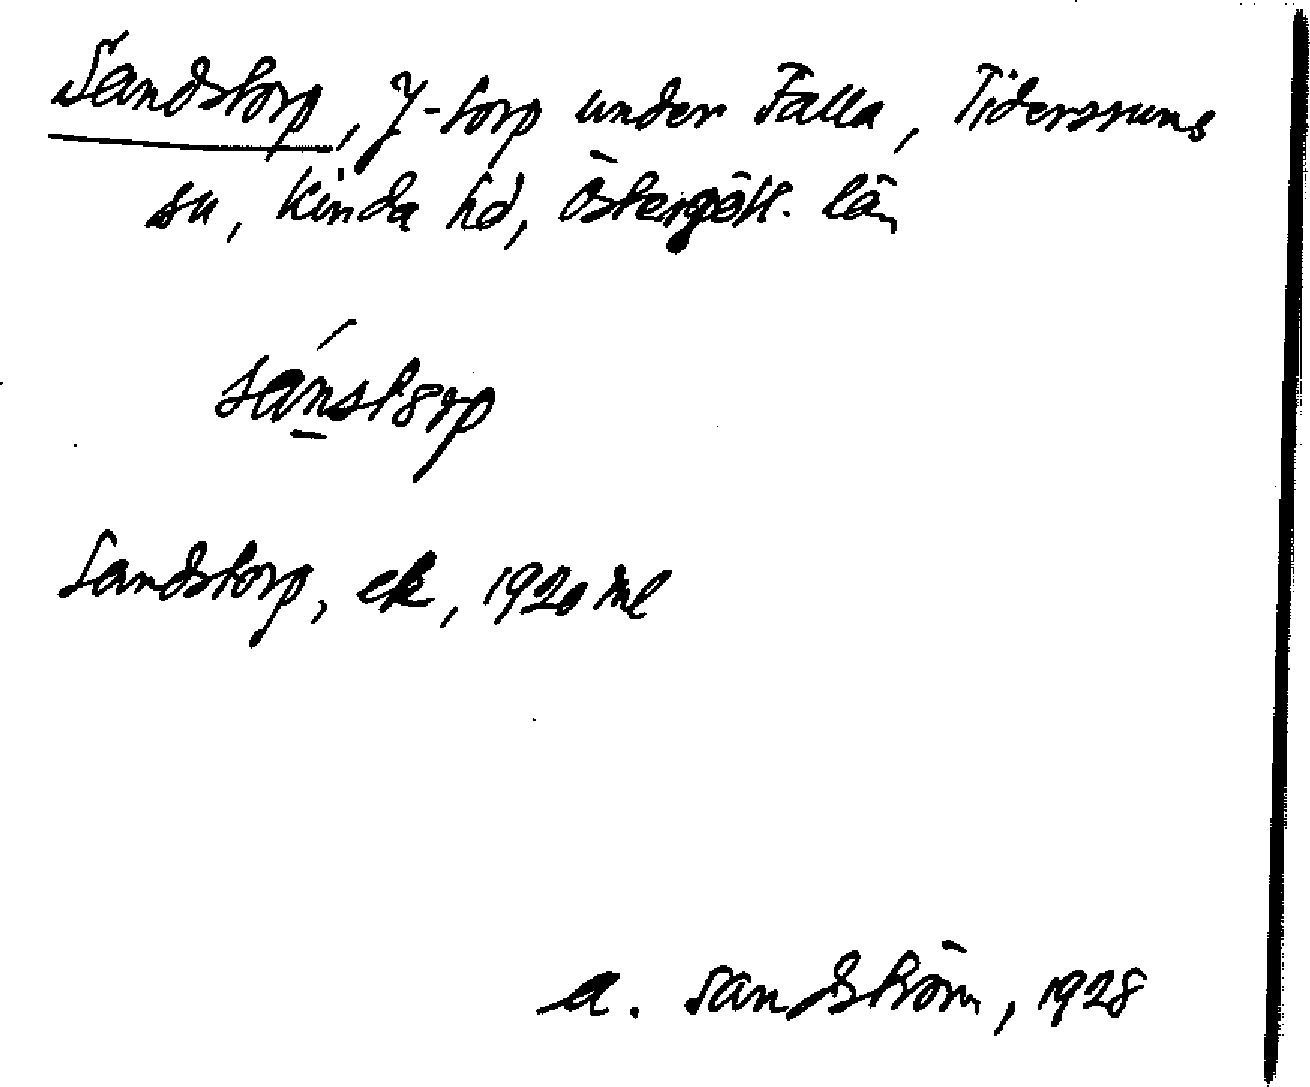 Sandstorp, J-torp under Falla, Tidersrums
sn, Kinda hd, Östergötl. län
sánstorp
Sandstorp, ek, 1920 ml
A. Sandström, 1928